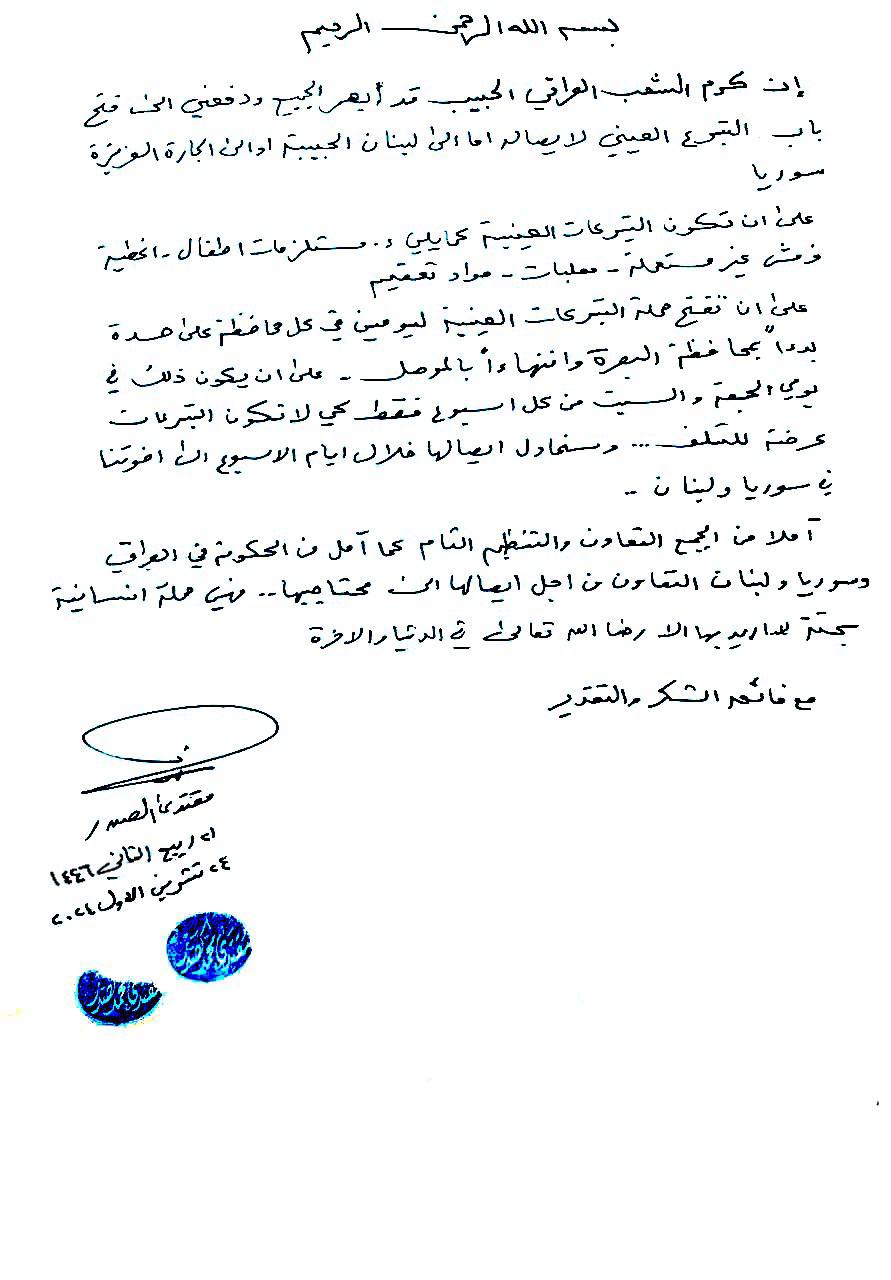 بسم الله الرحمن الرحيم
إن كرم الشعب العراقي الحبيب قد أبهر الجميع ودفعني الى فتح
باب التبرع العيني لايصاله اما الى لبنان الحبيبة او الى الجارة العزيزة
سوريا
على ان تكون التبرعات العينية كمايلي: مستلزمات اطفال - اغطية
فرش غير مستعملة - معلبات - مواد تعقيم
على ان تفتح حملة التبرعات العينية ليومين في كل محافظة على حدة
بدءاً بمحافظة البصرة وانتهاءاً بالموصل - على ان يكون ذلك في
يومي الجمعة والسبت من كل اسبوع فقط كي لا تكون التبرعات
عرضة للتلف ... وسنحاول ايصالها خلال ايام الاسبوع الى اخوتنا
في سوريا ولبنان ..
آملا من الجميع التعاون والتنظيم التام كما آمل من الحكومة في العراق
وسوريا ولبنان التعاون من اجل ايصالها الى محتاجيها .. فهي حملة انسانية
بحتة لا اريد بها الا رضا الله تعالى في الدنيا والاخرة
مع فائق الشكر والتقدير
مقتدى الصدر
٢١ ربيع الثاني ١٤٤٦
٢٤ تشرين الاول ٢٠٢٤